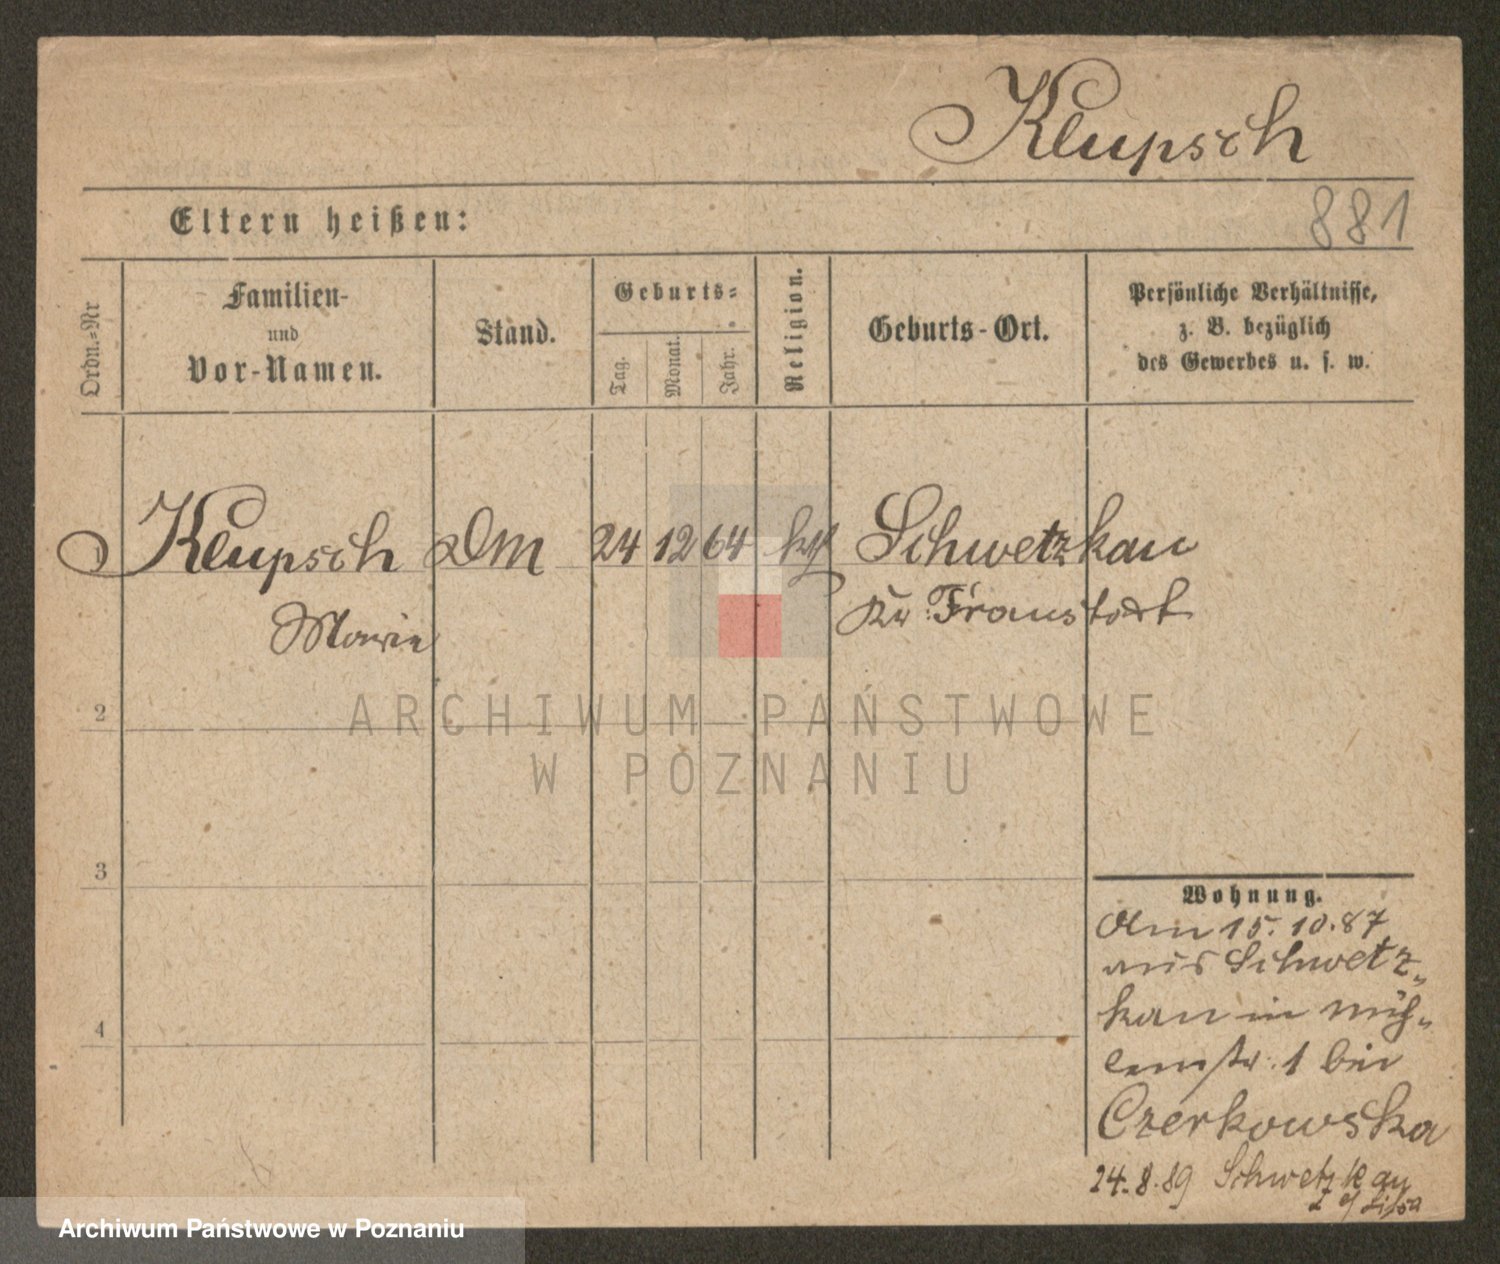 Klupsch
881
Eltern heißen:
Ordn.-Nr
Familien-
und
Vor-Namen.
Stand.
Geburts-
Tag.
Monat.
Jahr.
Religion.
Geburts-Ort.
Persönliche Verhältnisse,
z. B. bezüglich
des Gewerbes u. s. w.
Klupsch Dm 24 12 64 kth Schwetzkau
Marie Kr. Fraustadt
2
3
4
Wohnung.
Am 15.10.87
aus Schwetz-
kau in Müh-
lenstr. 1 bei
Czerkowska
24.8.89 Schwetzkau
Lissa
ARCHIWUM PAŃSTWOWE
W POZNANIU
Archiwum Państwowe w Poznaniu